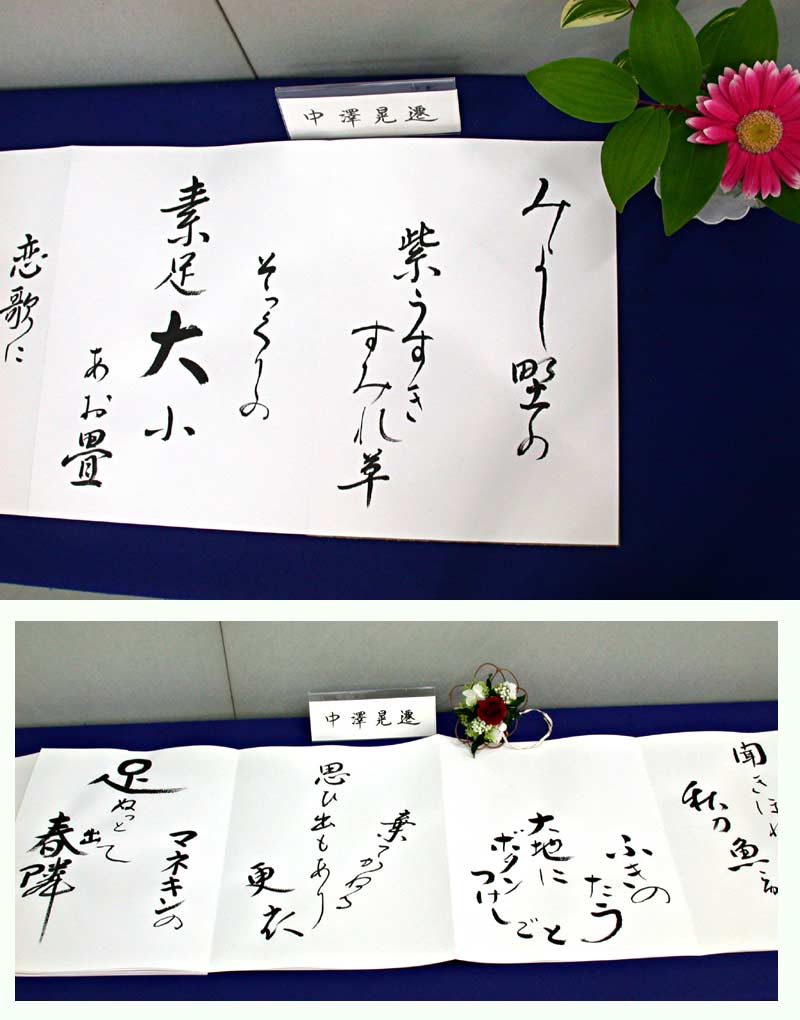 中澤晃遷
みよし野の
紫うすき
すみれ草
そっくりの
素足大小
あお畳
恋歌に
中澤晃遷
聞きほめ
秋刀魚
ふきの
たう
大地に
ボタン
つけし
ごと
棄てかねる
思ひ出もあり
更衣
マネキンの
足ぬっと
出て
春隣